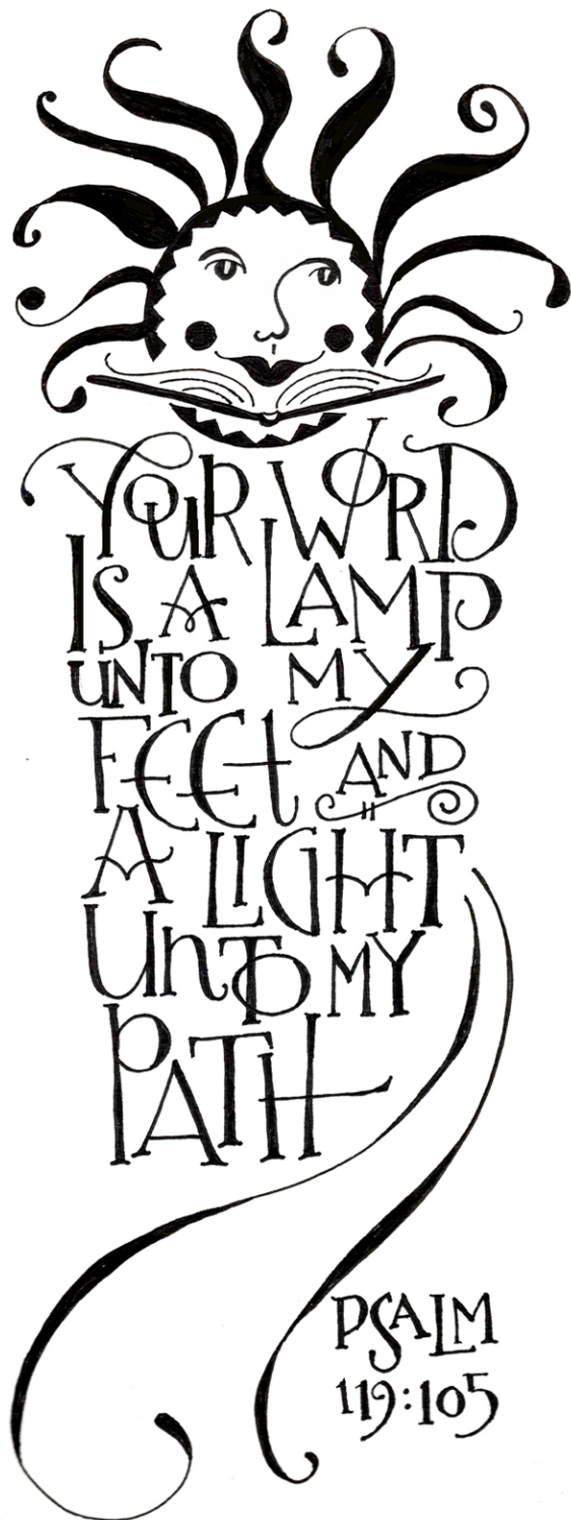 YOUR WORD
IS A LAMP
UNTO MY
FEEt AND
A LIGHT
UnTO MY
PATH
PSALM
119:105